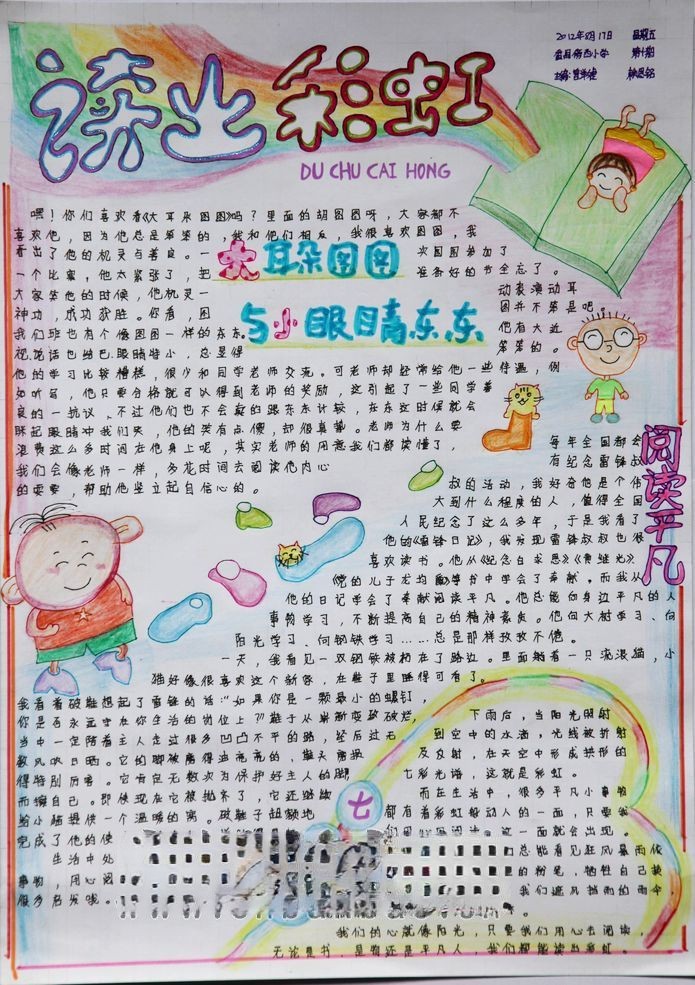 2012年5月17日 星期五
读出彩虹
DU CHU CAI HONG
嘿！你们喜欢看《大耳朵图图》吗？里面的胡图图呀，大家都不
喜欢他，因为他总是笨笨的，我和他们相反，我很喜欢图图，我
看出了他的机灵与善良。一
次图图参加了
一个比赛，他太紧张了，把
准备好的节全忘了。
大耳朵图图
与小眼睛东东
大家笑他的时候，他机灵一
动表演动耳
神功，成功获胜。你看，图
图并不笨是吧。
我们班也有个像图图一样的东东。
他有大近
视，说话也结巴，眼睛特小，总显得
笨笨的。
他的学习比较糟糕，很少和同学老师交流。可老师却经常给他一些待遇，例
如听写，他只要及格就可以得到老师的奖励，这引起了一些同学善
良的一抗议，不过他们也不会真的跟东东计较，在东这时候就会
眯起眼睛冲我们笑，他的笑有点傻，却很真挚。老师为什么要
浪费这么多时间在他身上呢，其实老师的用意我们都读懂了，
我们会像老师一样，多花时间去阅读他内心
的需要，帮助他坚立起自信心的。
阅读平凡
每年全国都会
有纪念雷锋叔
叔的活动，我好奇他是个伟
大到什么程度的人，值得全国
人民纪念了这么多年，于是我看了
他的《雷锋日记》，我发现雷锋叔叔也很
喜欢读书。他从《纪念白求恩》《黄继光》
《党的儿子龙均爵》等书中学会了奉献。而我从
他的日记学会了奉献阅读平凡。他总能向身边平凡的人
事物学习，不断提高自己的精神素质。他向大树学习、向
阳光学习、向钢铁学习……总是那样孜孜不倦。
一天，我看见一双钢铁被扔在了路边。里面躺着一只流浪猫，小
猫好像很喜欢这个新家，在鞋子里睡得可香了。
我看着破鞋想起了雷锋的话：“如果你是一颗最小的螺钉，
你是否永远守在你生活的岗位上？”鞋子从崭新变破烂，
当中一定陪着主人走过很多凹凸不平的路，经历过无
数风吹日晒。它的脚被磨得油亮亮的，鞋头磨损
得特别厉害。它肯定无数次为保护好主人的脚
而擦自己。即使现在它被抛弃了，它还继续
给小猫提供一个温暖的窝。破鞋子超额地
完成了他的使
生活中处
事物，用心阅
很多启发哦。
七
下雨后，当阳光照射
到空中的水滴，光线被折射
及反射，在天空中形成拱形的
七彩光谱，这就是彩虹。
而在生活中，很多平凡小事物
都有着彩虹般动人的一面，只要我
这一面就会出现。
们总能看见狂风暴雨后
的粉笔，牺牲自己换
我们遮风挡雨的雨伞
。
我们的心就像阳光，只要我们用心去阅读，
无论是书，是物还是平凡人，我们都能读出彩虹。